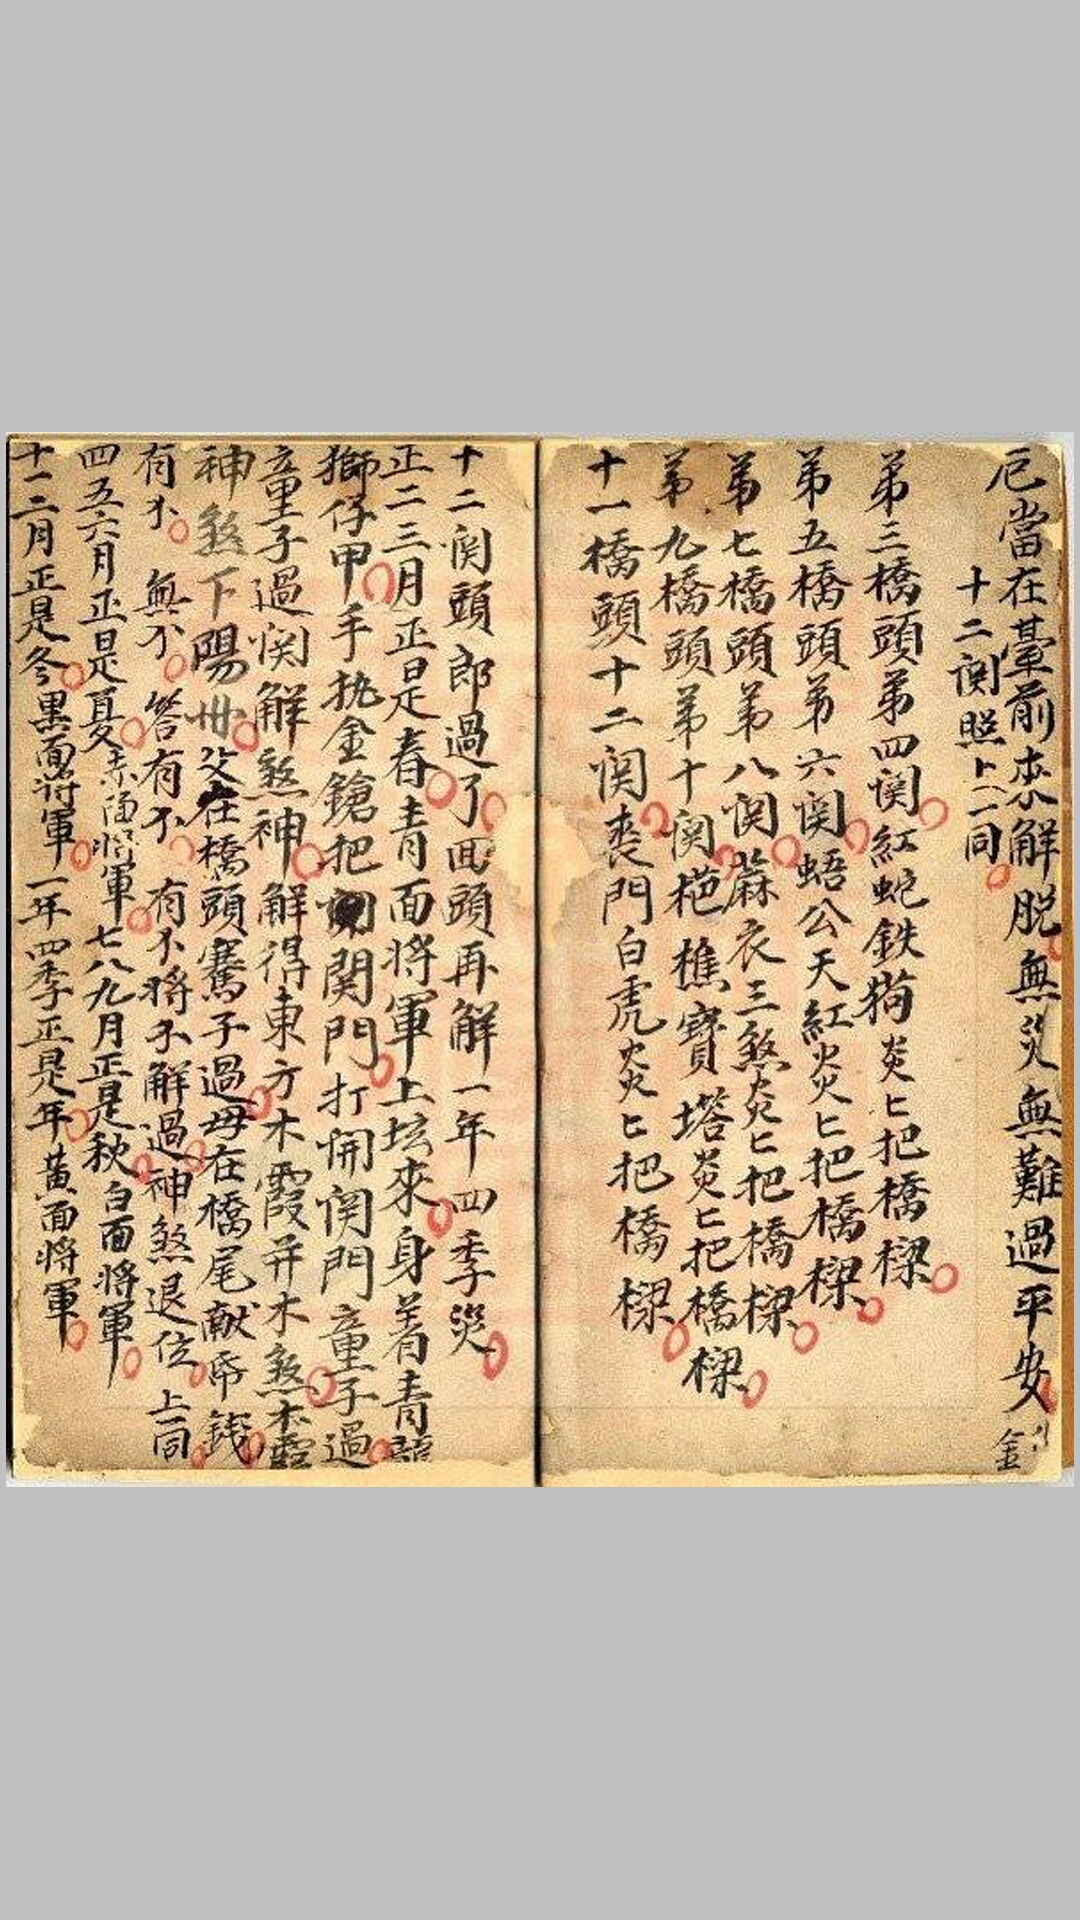 厄當在臺前來解脱無災無難過平安
十二関照上一同
弟三橋頭弟四関紅蛇鉄狗炎匕把橋樑
弟五橋頭弟六関蜈公天紅炎匕把橋樑
弟七橋頭弟八関蔴衣三煞炎匕把橋樑
弟九橋頭弟十関樵寶塔炎匕把橋樑
十一橋頭十二関喪門白虎炎匕把橋樑
十二関頭郎過了囬頭再解一年四季災
正二三月正是春青面将軍上坛來身着青
獅仔甲手執金鎗把関門打開関門童子過
童子過関解煞神解得東方木霞并木煞木霞
神煞下陽州父在橋頭騫子過母在橋尾献帋錢
有不無不答有不有不将不解過神煞退位上同
四五六月正是夏赤面将軍七八九月正是秋白面将軍
十一二月正是冬黒面将軍一年四季正是年黃面将軍